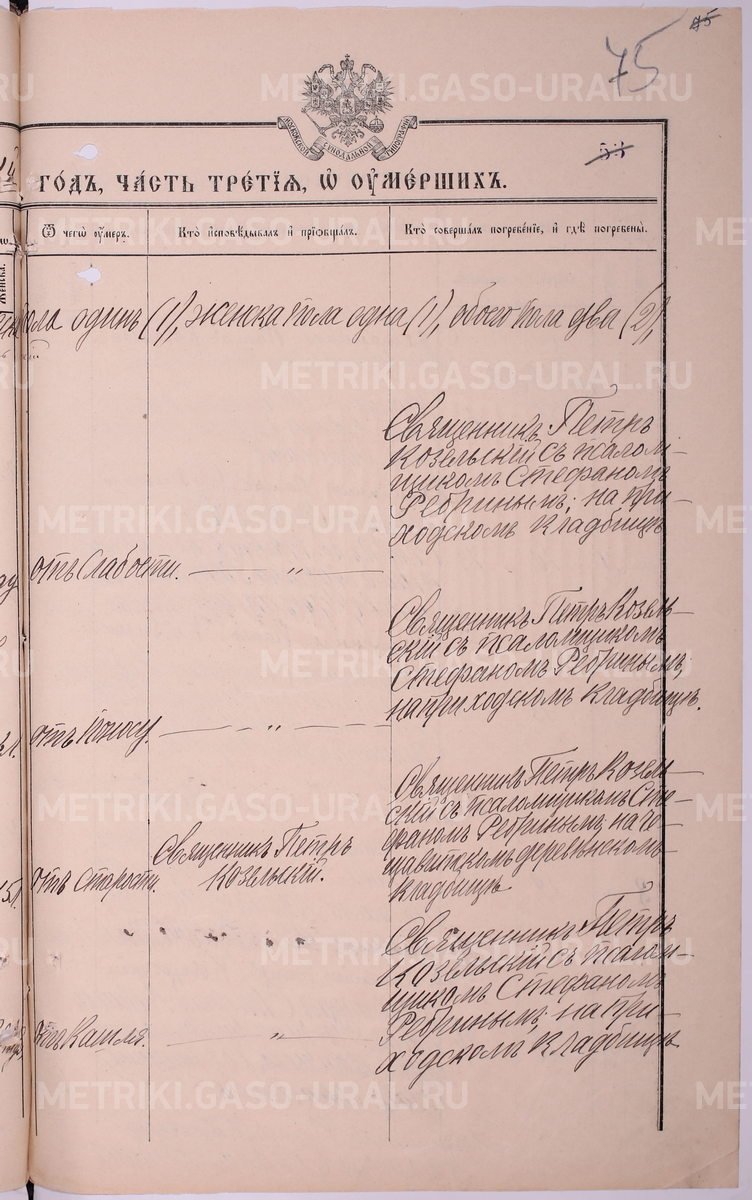 75
МОСКОВСКОЙ СУНОДАЛЬНОЙ ТИПОГРАФІИ
го́дъ, ча́сть тре́тїѧ, ѡ҆ оу҆ме́ршихъ.
Ѿ чегѡ̀ оу҆́меръ.
Кто̀ и҆сповѣ́дывалъ и҆ прїѡбща́лъ.
Кто̀ соверша́лъ погребе́нїе, и҆ гдѣ̀ погребены̀.
пола одинъ (1), женска пола одна (1), обоего пола два (2),
Священникъ Петръ
Козельскій съ псалом-
щикомъ Стефаномъ
Ребринымъ; на при-
ходскомъ кладбищѣ
отъ Слабости. — „ —
Священникъ Петръ Козель-
скій съ псаломщикомъ
Стефаномъ Ребринымъ,
на приходскомъ кладбищѣ.
отъ Поносу. — „ —
Священникъ Петръ Козель-
скій съ псаломщикомъ Сте-
фаномъ Ребринымъ, на
деревенскомъ
кладбищѣ.
Священникъ Петръ
Козельскій.
отъ Старости.
Священникъ Петръ
Козельскій съ псалом-
щикомъ Стефаномъ
Ребринымъ, на при-
ходскомъ кладбищѣ
отъ Кашля. — „ —
METRIKI.GASO-URAL.RU